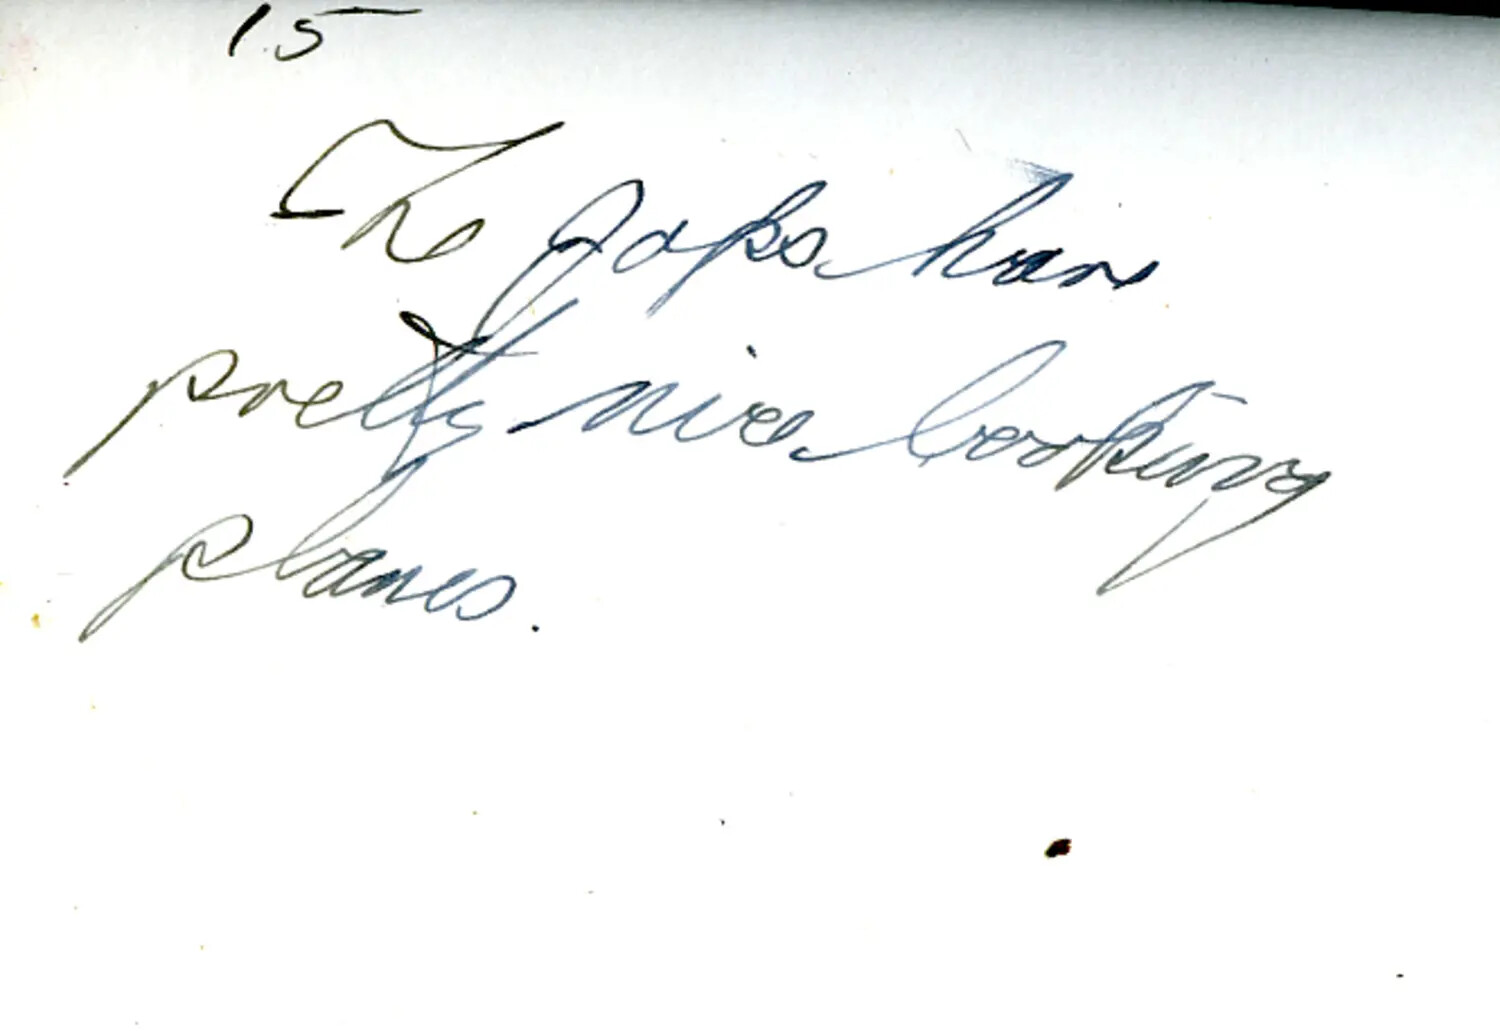 15
The Japs have
pretty nice looking
planes.